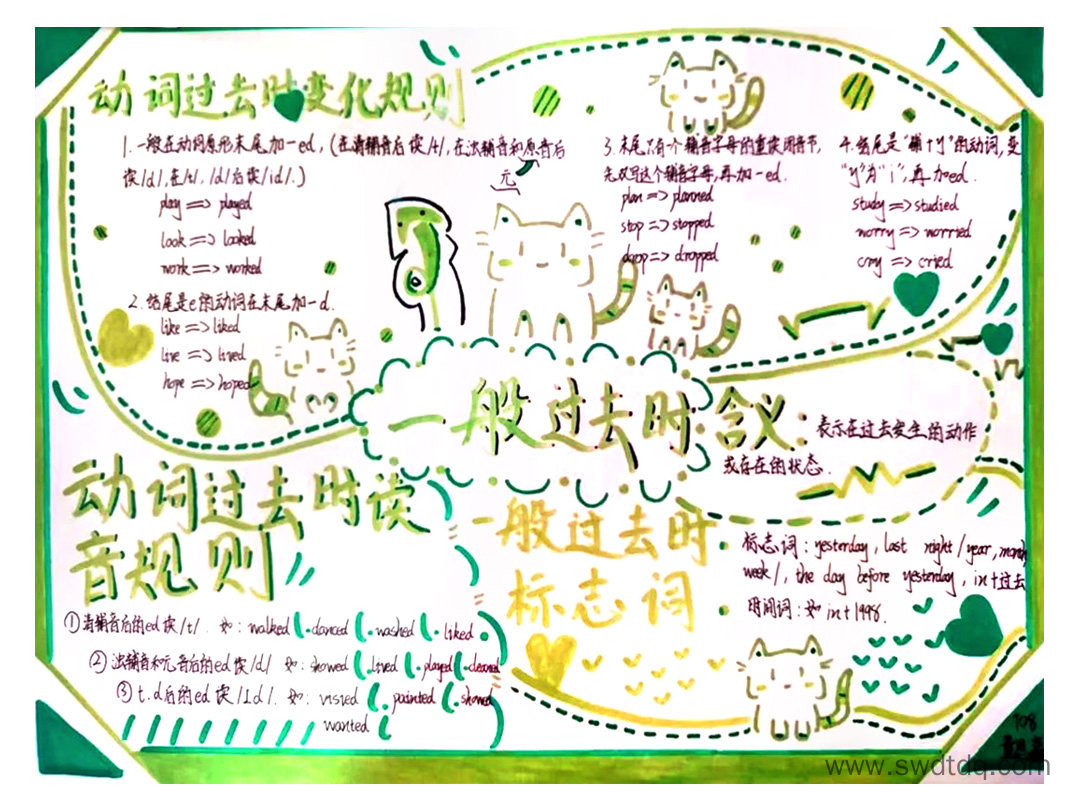 动词过去时变化规则
1. 一般在动词原形末尾加-ed,(在清辅音后读/t/,在浊辅音和原音后
元
读/d/,在/t/,/d/后读/id/.)
play => played
look => looked
work => worked
2. 结尾是e的动词在末尾加-d.
like => liked
live => lived
hope => hoped
3. 末尾只有一个辅音字母的重读闭音节,
先双写这个辅音字母,再加-ed.
plan => planned
stop => stopped
drop => dropped
4. 结尾是"辅+y"的动词,变
"y"为"i",再加ed.
study => studied
worry => worried
cry => cried
一般过去时
含义:表示在过去发生的动作
或存在的状态.
动词过去时读
音规则
①清辅音后的ed读/t/. 如: walked . danced . washed . liked .
②浊辅音和元音后的ed读/d/ 如: showed . lived . played . cleaned
③t.d后的ed读/Id/. 如: visied . painted . showed
wanted
一般过去时
标志词
标志词: yesterday, last night/year, month
week/, the day before yesterday, in+过去
时间词: 如in+1998.
108
www.swdtdq.com